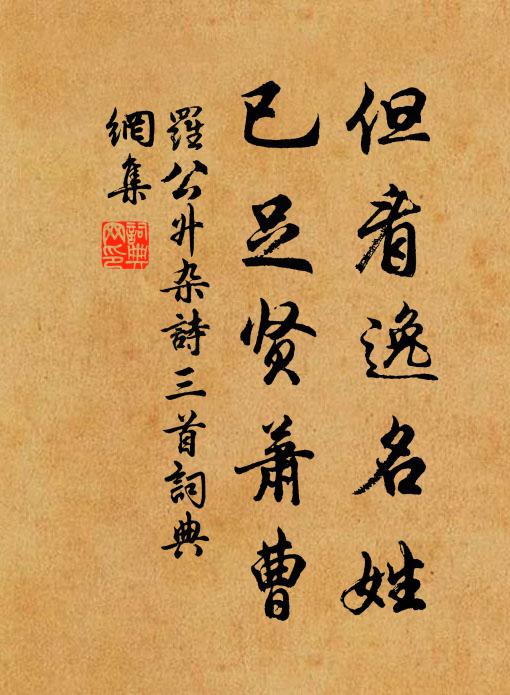 但看逸名姓
已足贤萧曹
羅公升杂詩三首詞典
網集
詞典網印